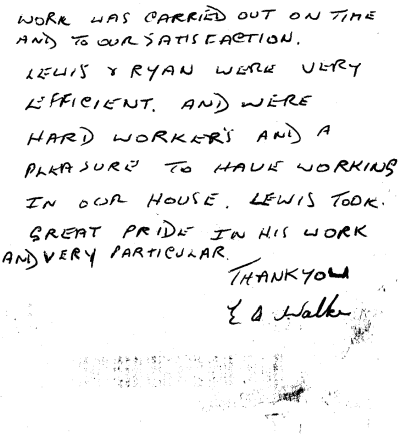 WORK WAS CARRIED OUT ON TIME
AND TO OUR SATISFACTION.
LEWIS & RYAN WERE VERY
EFFICIENT. AND WERE
HARD WORKER'S AND A
PLEASURE TO HAVE WORKING
IN OUR HOUSE. LEWIS TOOK.
GREAT PRIDE IN HIS WORK
AND VERY PARTICULAR.
THANKYOU
E A Walker